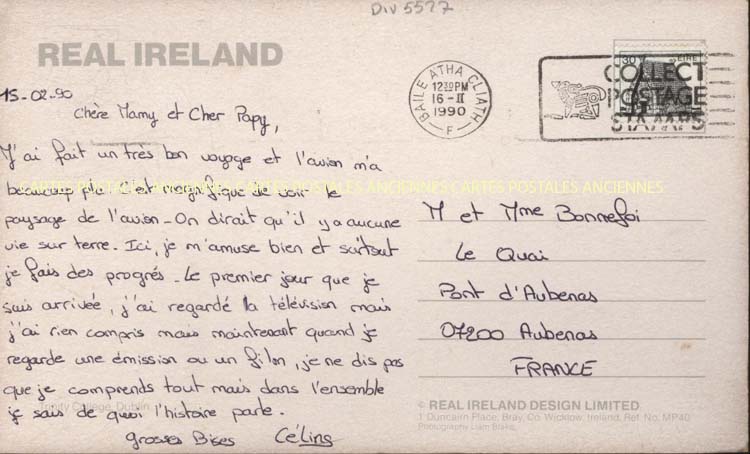 Div 5577
REAL IRELAND
15-02-90
Chère Mamy et Cher Papy,
J'ai fait un très bon voyage et l'avion m'a
beaucoup plu. C'est magnifique de voir le
CARTES POSTALES ANCIENNES CARTES POSTALES ANCIENNES CARTES POSTALES ANCIENNES
paysage de l'avion - On dirait qu'il y a aucune
vie sur terre. Ici, je m'amuse bien et surtout
je fais des progrés. Le premier jour que je
suis arrivée, j'ai regardé la télévision mais
j'ai rien compris mais maintenant quand je
regarde une émission ou un film, je ne dis pas
que je comprends tout mais dans l'ensemble
je sais de quoi l'histoire parle.
Trinity College, Dublin.
grosses Bises Céline
BAILE ÁTHA CLIATH
12 30 PM
16-II
1990
F
30 ÉIRE
COLLECT
POSTAGE
STAMPS
M et Mme Bonnefoi
Le Quai
Pont d'Aubenas
07200 Aubenas
FRANCE
© REAL IRELAND DESIGN LIMITED
1 Duncairn Place, Bray, Co. Wicklow, Ireland. Ref. No. MP40
Photography Liam Blake.